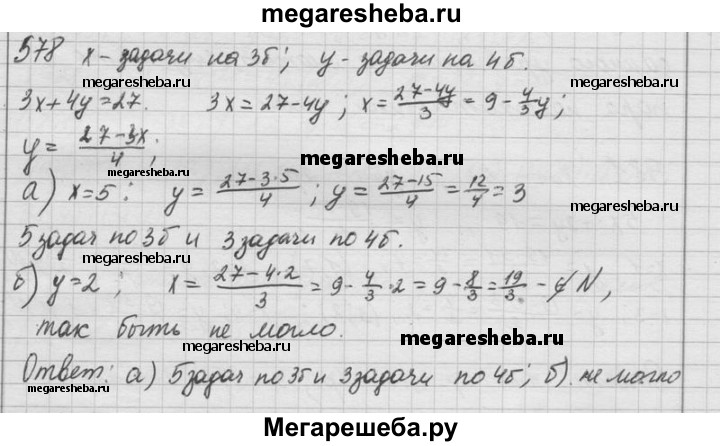 megaresheba.ru
578 x - задачи на 3б; y - задачи на 4б.
megaresheba.ru megaresheba.ru
3x+4y=27. 3x=27-4y; x=\frac{27-4y}{3}=9-\frac{4}{3}y;
y=\frac{27-3x}{4};
megaresheba.ru
а) x=5: y=\frac{27-3·5}{4}; y=\frac{27-15}{4}=\frac{12}{4}=3
megaresheba.ru
5 задач по 3б и 3 задачи по 4б.
megaresheba.ru
б) y=2; x=\frac{27-4·2}{3}=9-\frac{4}{3}·2=9-\frac{8}{3}=\frac{19}{3}-∉N,
megaresheba.ru
так быть не могло.
megaresheba.ru megaresheba.ru
Ответ: а) 5 задач по 3б и 3 задачи по 4б; б) не могло
megaresheba.ru megaresheba.ru
Мегарешеба.ру